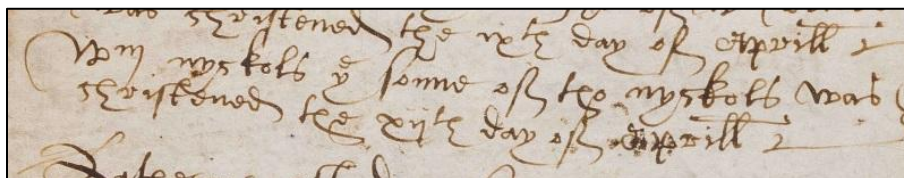 was christened the ixth day of Aprill
Wm nyckols ye sonne of tho nyckols was
christened the xijth day of Aprill